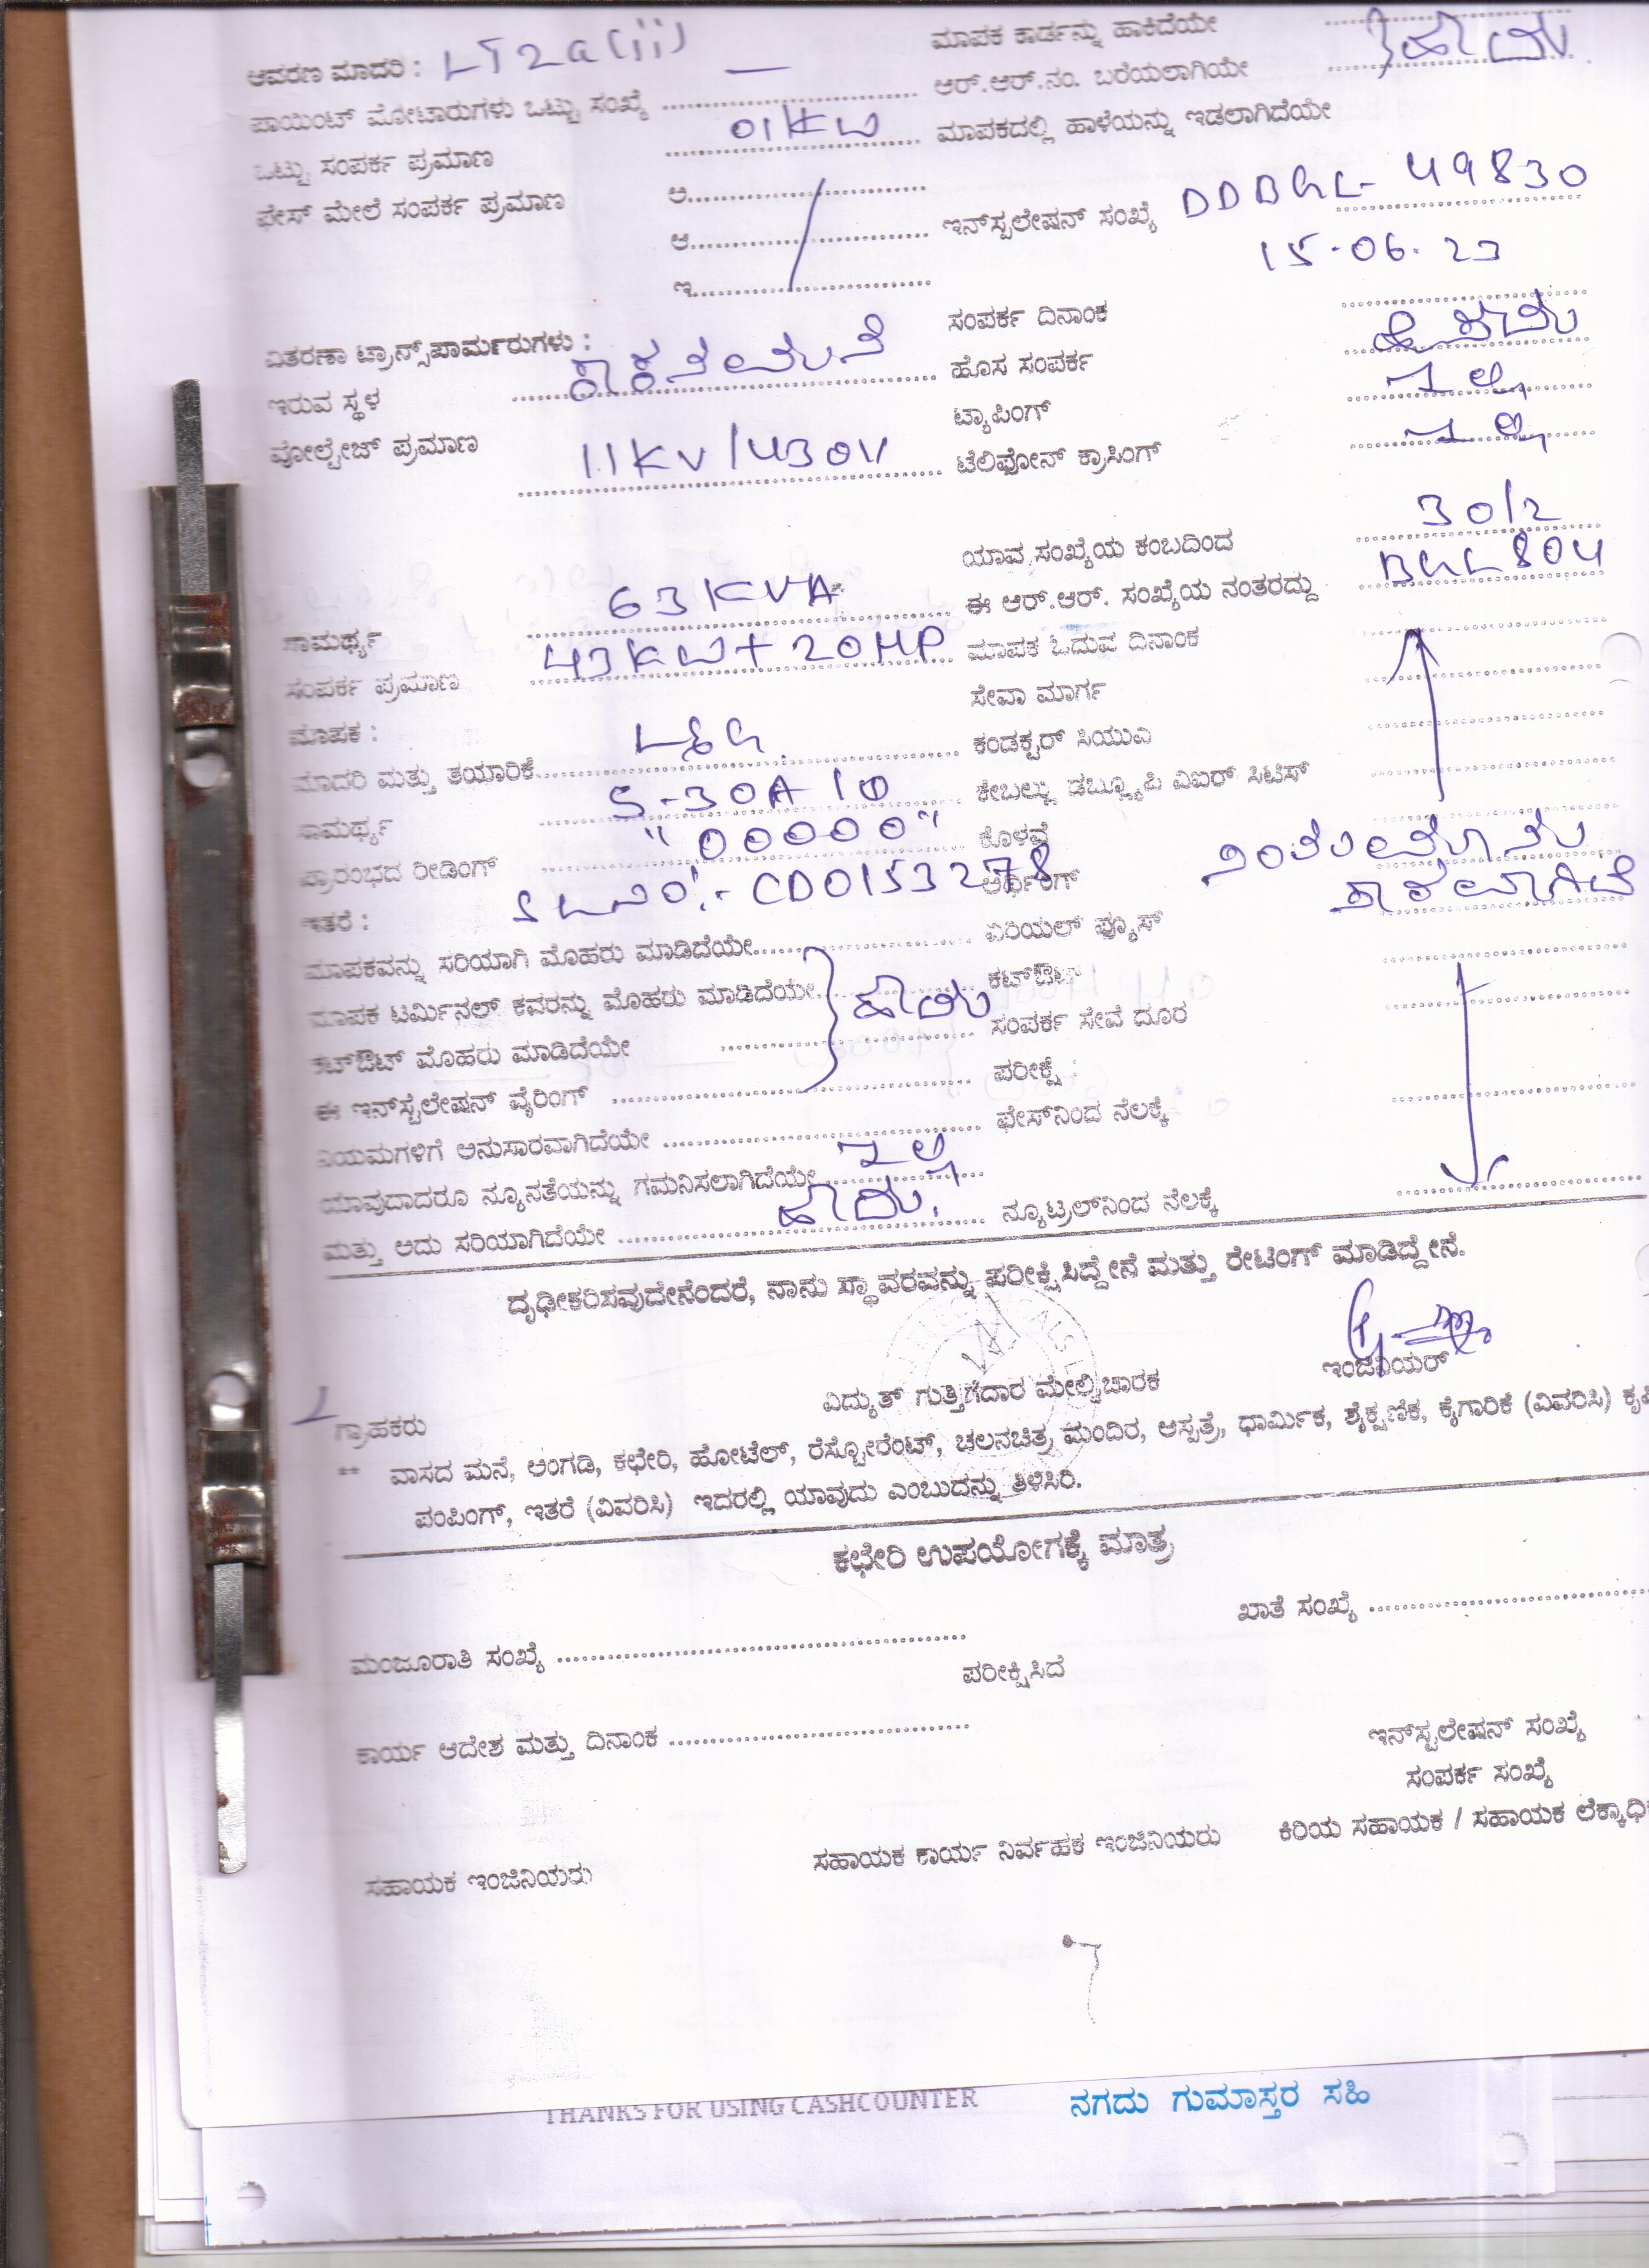 ಆವರಣ ಮಾದರಿ : LT2a(ii)
ಮಾಪಕ ಕಾರ್ಡನ್ನು ಹಾಕಿದೆಯೇ
ಪಾಯಿಂಟ್ ಮೋಟಾರುಗಳು ಒಟ್ಟು ಸಂಖ್ಯೆ —
ಆರ್.ಆರ್.ನಂ. ಬರೆಯಲಾಗಿಯೇ
ಒಟ್ಟು ಸಂಪರ್ಕ ಪ್ರಮಾಣ 01KW
ಮಾಪಕದಲ್ಲಿ ಹಾಳೆಯನ್ನು ಇಡಲಾಗಿದೆಯೇ
ಫೇಸ್ ಮೇಲೆ ಸಂಪರ್ಕ ಪ್ರಮಾಣ ಅ
ಆ
ಇನ್‌ಸ್ಪಲೇಷನ್ ಸಂಖ್ಯೆ DDBGL- 49830
ಇ
15-06-23
ವಿತರಣಾ ಟ್ರಾನ್ಸ್‌ಪಾರ್ಮರುಗಳು :
ಸಂಪರ್ಕ ದಿನಾಂಕ
ಇರುವ ಸ್ಥಳ
ಹೊಸ ಸಂಪರ್ಕ
ಟ್ಯಾಪಿಂಗ್ ಇಲ್ಲ
ವೋಲ್ಟೇಜ್ ಪ್ರಮಾಣ 11KV/430V
ಟೆಲಿಫೋನ್ ಕ್ರಾಸಿಂಗ್ ಇಲ್ಲ
ಯಾವ ಸಂಖ್ಯೆಯ ಕಂಬದಿಂದ 30/2
ಸಾಮರ್ಥ್ಯ 63KVA
ಈ ಆರ್.ಆರ್. ಸಂಖ್ಯೆಯ ನಂತರದ್ದು BGL804
ಸಂಪರ್ಕ ಪ್ರಮಾಣ 43KW+20HP
ಮಾಪಕ ಓದುವ ದಿನಾಂಕ
ಮಾಪಕ :
ಸೇವಾ ಮಾರ್ಗ
ಮಾದರಿ ಮತ್ತು ತಯಾರಿಕೆ L&G.
ಕಂಡಕ್ಟರ್ ಸಿಯುಎ
ಸಾಮರ್ಥ್ಯ 5-30A 1Φ
ಕೇಬಲ್ಲು ಡಬ್ಲ್ಯೂಪಿ ಎಐರ್ ಸಿಟಿಸ್
ಪ್ರಾರಂಭದ ರೀಡಿಂಗ್ "00000"
ಕೊಳವೆ
ಇತರೆ : SLNO:- CD0153278
ಅರ್ಥಿಂಗ್
ಮಾಪಕವನ್ನು ಸರಿಯಾಗಿ ಮೊಹರು ಮಾಡಿದೆಯೇ
ಏರಿಯಲ್ ಫ್ಯೂಸ್
ಮಾಪಕ ಟರ್ಮಿನಲ್ ಕವರನ್ನು ಮೊಹರು ಮಾಡಿದೆಯೇ ಹೌದು
ಕಟ್‌ಔಟ್
ಕಟ್‌ಔಟ್ ಮೊಹರು ಮಾಡಿದೆಯೇ
ಸಂಪರ್ಕ ಸೇವೆ ದೂರ
ಈ ಇನ್‌ಸ್ಟೆಲೇಷನ್ ವೈರಿಂಗ್
ಪರೀಕ್ಷೆ :
ನಿಯಮಗಳಿಗೆ ಅನುಸಾರವಾಗಿದೆಯೇ
ಫೇಸ್‌ನಿಂದ ನೆಲಕ್ಕೆ
ಯಾವುದಾದರೂ ನ್ಯೂನತೆಯನ್ನು ಗಮನಿಸಲಾಗಿದೆಯೇ ಇಲ್ಲ
ಮತ್ತು ಅದು ಸರಿಯಾಗಿದೆಯೇ ಹೌದು.
ನ್ಯೂಟ್ರಲ್‌ನಿಂದ ನೆಲಕ್ಕೆ
ದೃಢೀಕರಿಸವುದೇನೆಂದರೆ, ನಾನು ಸ್ಥಾವರವನ್ನು ಪರೀಕ್ಷಿಸಿದ್ದೇನೆ ಮತ್ತು ರೇಟಿಂಗ್ ಮಾಡಿದ್ದೇನೆ.
ಗ್ರಾಹಕರು ವಿದ್ಯುತ್ ಗುತ್ತಿಗೆದಾರ ಮೇಲ್ವಿಚಾರಕ ಇಂಜಿನಿಯರ್
** ವಾಸದ ಮನೆ, ಅಂಗಡಿ, ಕಛೇರಿ, ಹೋಟೆಲ್, ರೆಸ್ಟೋರೆಂಟ್, ಚಲನಚಿತ್ರ ಮಂದಿರ, ಆಸ್ಪತ್ರೆ, ಧಾರ್ಮಿಕ, ಶೈಕ್ಷಣಿಕ, ಕೈಗಾರಿಕೆ (ವಿವರಿಸಿ)
ಪಂಪಿಂಗ್, ಇತರೆ (ವಿವರಿಸಿ) ಇದರಲ್ಲಿ ಯಾವುದು ಎಂಬುದನ್ನು ತಿಳಿಸಿರಿ.
ಕಛೇರಿ ಉಪಯೋಗಕ್ಕೆ ಮಾತ್ರ
ಮಂಜೂರಾತಿ ಸಂಖ್ಯೆ
ಖಾತೆ ಸಂಖ್ಯೆ
ಪರೀಕ್ಷಿಸಿದ
ಕಾರ್ಯ ಆದೇಶ ಮತ್ತು ದಿನಾಂಕ
ಇನ್‌ಸ್ಟಲೇಷನ್ ಸಂಖ್ಯೆ
ಸಂಪರ್ಕ ಸಂಖ್ಯೆ
ಸಹಾಯಕ ಇಂಜಿನಿಯರು ಸಹಾಯಕ ಕಾರ್ಯ ನಿರ್ವಾಹಕ ಇಂಜಿನಿಯರು ಕಿರಿಯ ಸಹಾಯಕ / ಸಹಾಯಕ
THANKS FOR USING CASHCOUNTER ನಗದು ಗುಮಾಸ್ತರ ಸಹಿ